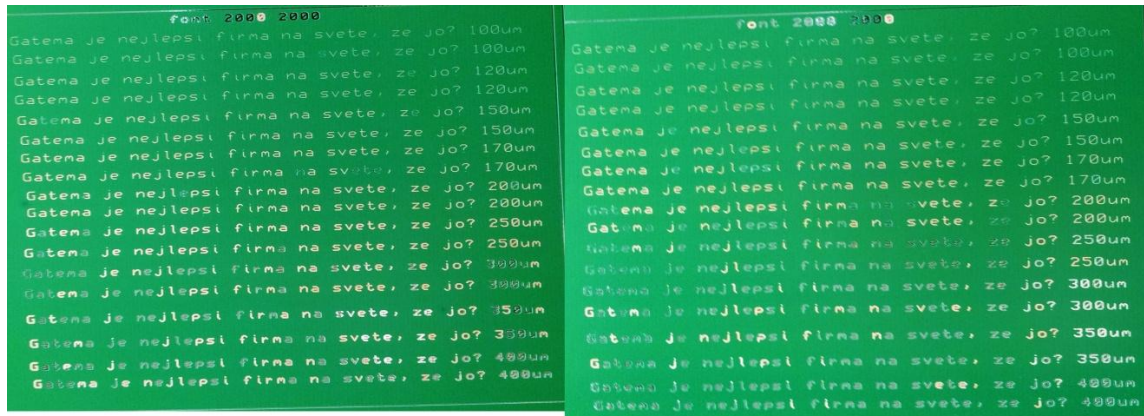 font 2000 2000
Gatema je nejlepsi firma na svete, ze jo? 100um
Gatema je nejlepsi firma na svete, ze jo? 100um
Gatema je nejlepsi firma na svete, ze jo? 120um
Gatema je nejlepsi firma na svete, ze jo? 120um
Gatema je nejlepsi firma na svete, ze jo? 150um
Gatema je nejlepsi firma na svete, ze jo? 150um
Gatema je nejlepsi firma na svete, ze jo? 170um
Gatema je nejlepsi firma na svete, ze jo? 170um
Gatema je nejlepsi firma na svete, ze jo? 200um
Gatema je nejlepsi firma na svete, ze jo? 200um
Gatema je nejlepsi firma na svete, ze jo? 250um
Gatema je nejlepsi firma na svete, ze jo? 250um
Gatema je nejlepsi firma na svete, ze jo? 300um
Gatema je nejlepsi firma na svete, ze jo? 300um
Gatema je nejlepsi firma na svete, ze jo? 350um
Gatema je nejlepsi firma na svete, ze jo? 350um
Gatema je nejlepsi firma na svete, ze jo? 400um
Gatema je nejlepsi firma na svete, ze jo? 400um
font 2000 2000
Gatema je nejlepsi firma na svete, ze jo? 100um
Gatema je nejlepsi firma na svete, ze jo? 100um
Gatema je nejlepsi firma na svete, ze jo? 120um
Gatema je nejlepsi firma na svete, ze jo? 120um
Gatema je nejlepsi firma na svete, ze jo? 150um
Gatema je nejlepsi firma na svete, ze jo? 150um
Gatema je nejlepsi firma na svete, ze jo? 170um
Gatema je nejlepsi firma na svete, ze jo? 170um
Gatema je nejlepsi firma na svete, ze jo? 200um
Gatema je nejlepsi firma na svete, ze jo? 200um
Gatema je nejlepsi firma na svete, ze jo? 250um
Gatema je nejlepsi firma na svete, ze jo? 250um
Gatema je nejlepsi firma na svete, ze jo? 300um
Gatema je nejlepsi firma na svete, ze jo? 300um
Gatema je nejlepsi firma na svete, ze jo? 350um
Gatema je nejlepsi firma na svete, ze jo? 350um
Gatema je nejlepsi firma na svete, ze jo? 400um
Gatema je nejlepsi firma na svete, ze jo? 400um